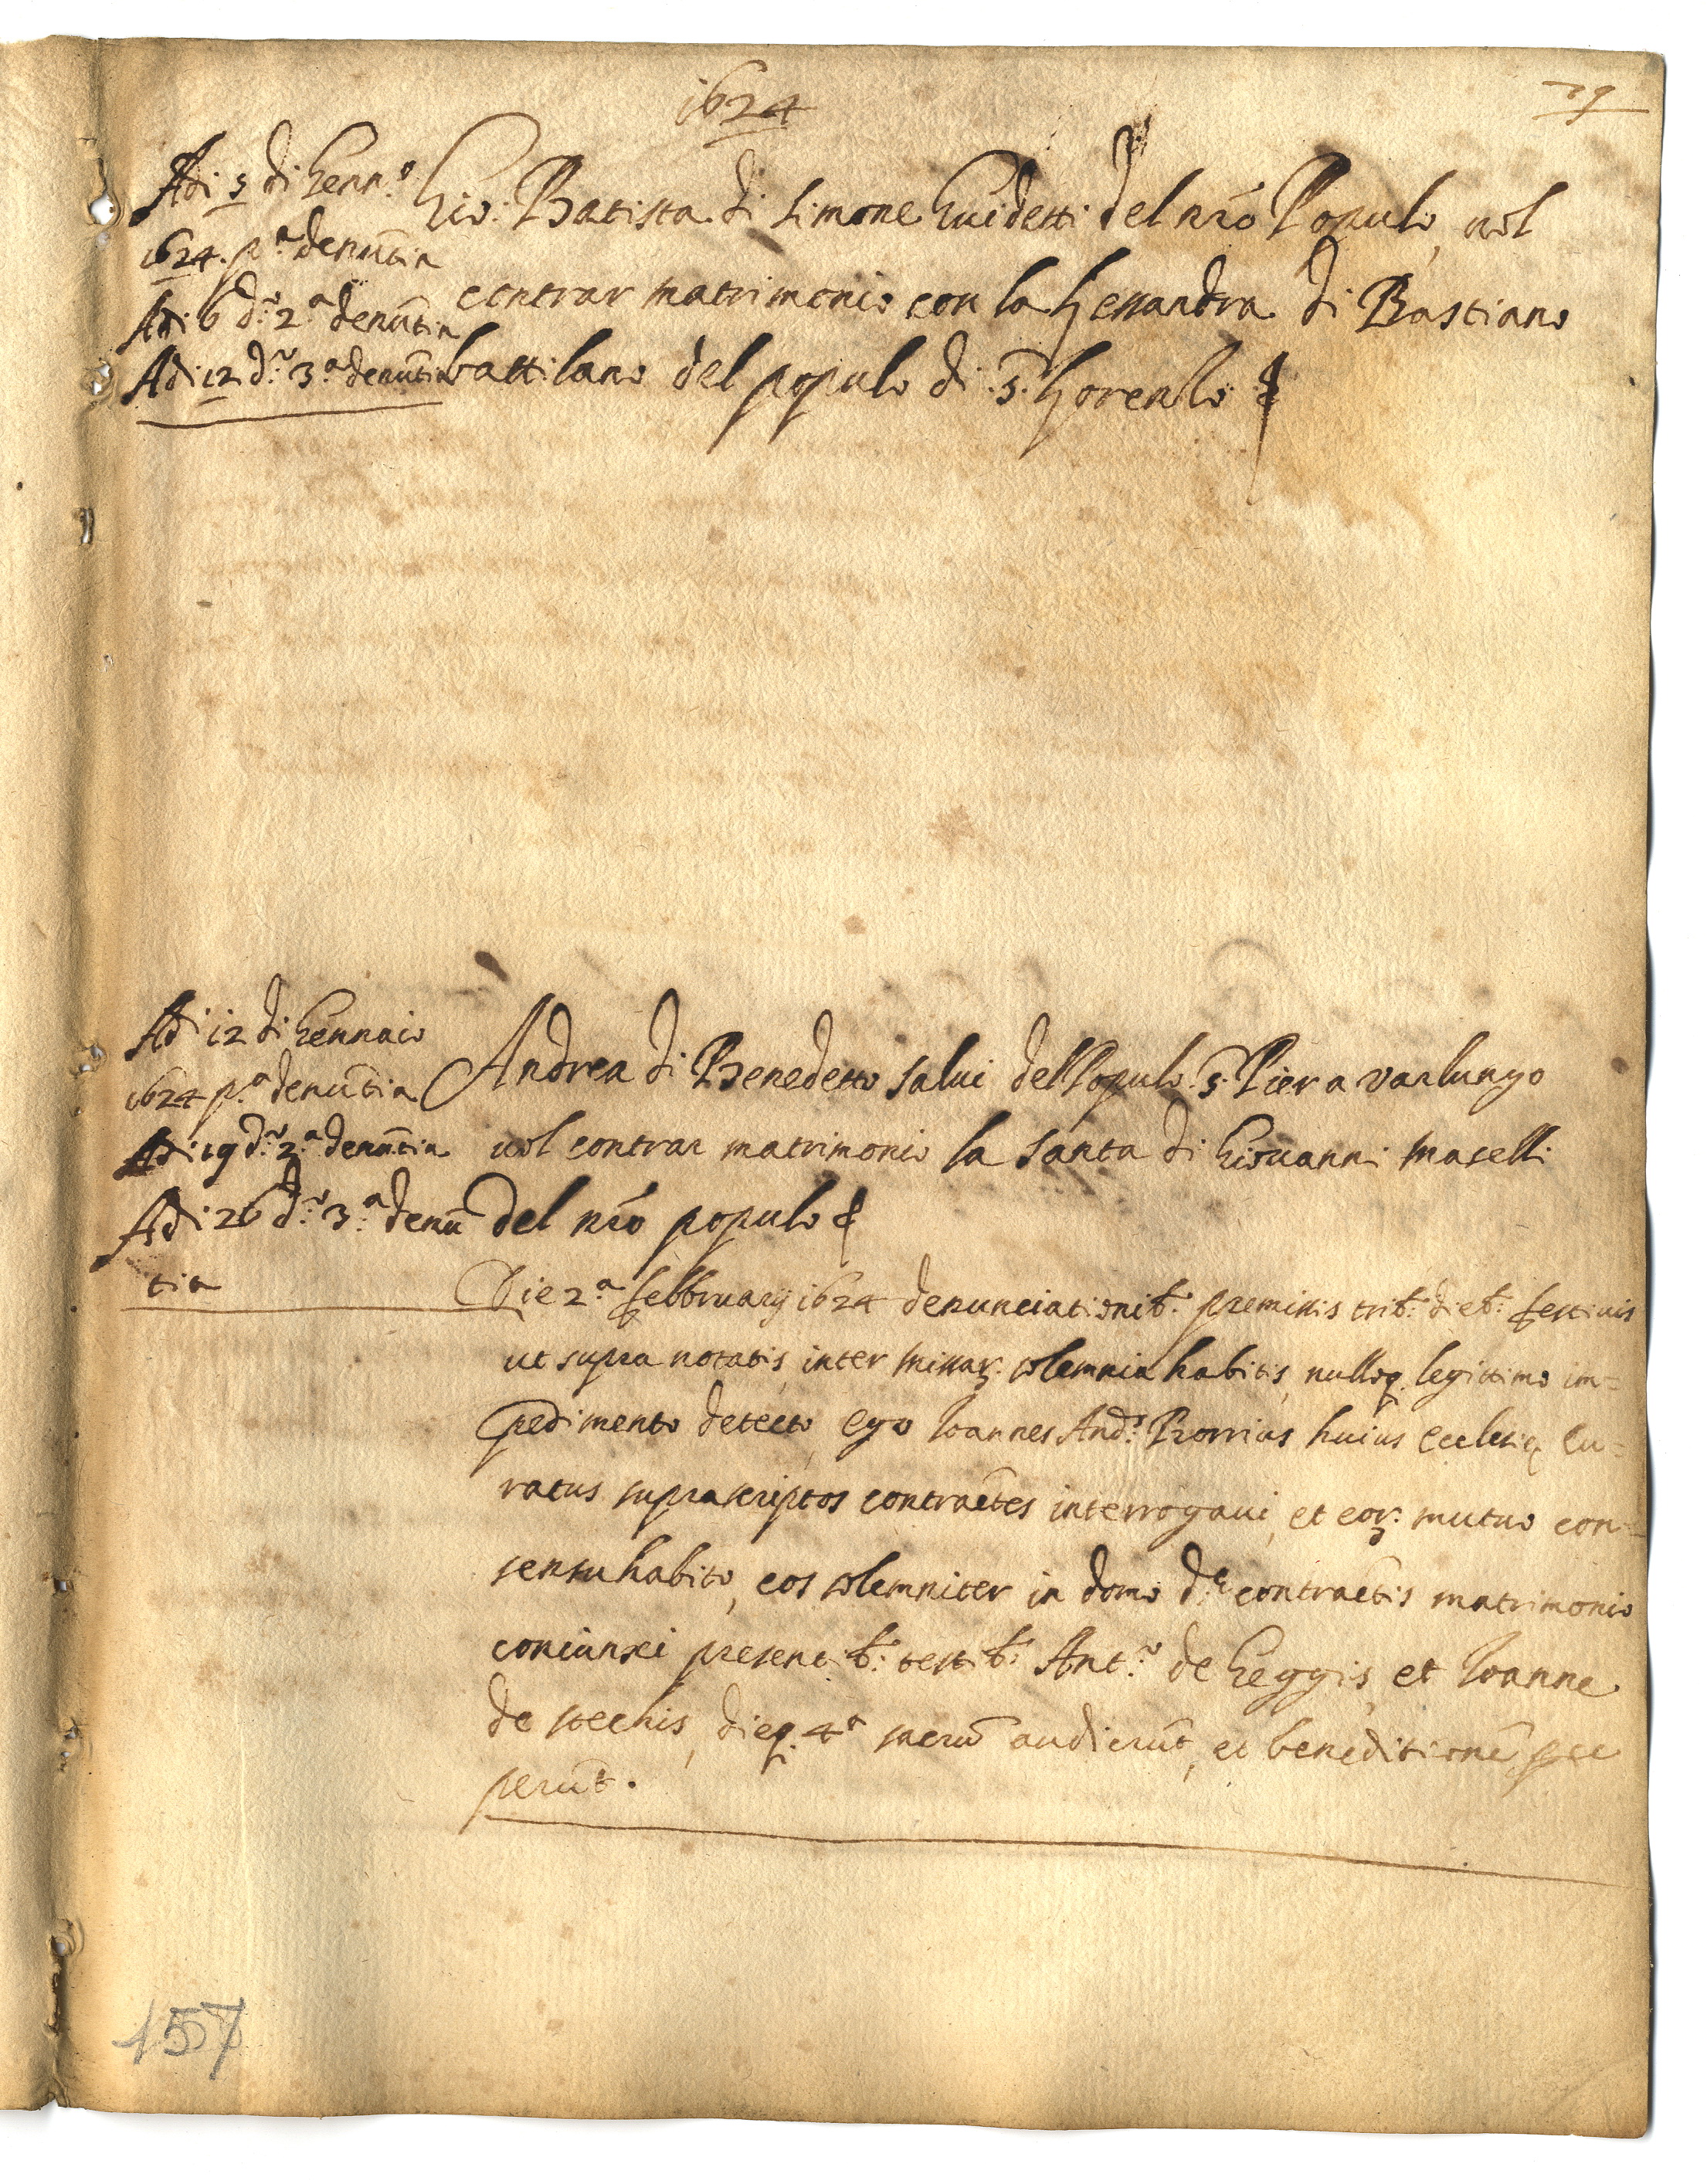 1624
79
Adi 5 di Genn.º
1624. p.ª denũtia
Adi 6 d.º 2.ª denũtia
Adi 12 d.º 3.ª denũtia
Gio: Batista di Simone Guidetti del nr̃o Popolo, uol
contrar matrimonio con la Lessandra di Bastiano
battilano del popolo di S. Lorenzo &
Adi 12 di Gennaio
1624 p.ª denũtia
Adi 19 d.º 2.ª denũtia
Adi 26 d.º 3.ª denũ
tia
Andrea di Benedetto Salui del Popolo S. Piero a Varlungo
uol contrar matrimonio la Santa di Giouanni Maselli
del nr̃o popolo &
Die 2.ª febbruarij 1624 denunciationib: premissis trib: dieb: festiuis
ut supra notatis, inter missar: solemnia habitis, nulloq. legittimo im=
pedimento detecto, ego Ioannes And.ª huius Ecclesię Cu=
ratus suprascriptos contraẽtes interrogaui, et eor: mutuo con=
sensu habito, eos solemniter in domo d.ę contraẽtis matrimonio
coniunxi presentib: testib: Ant.º de Geggis, et Ioanne
de stechis, dieq. 4ª sacrũ audierũt, et beneditionẽ
perũt.
157